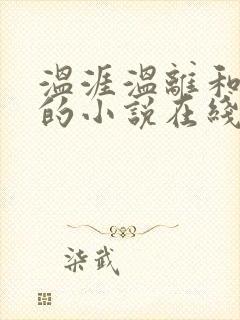 温涯温離和
的小说在綫
柒武